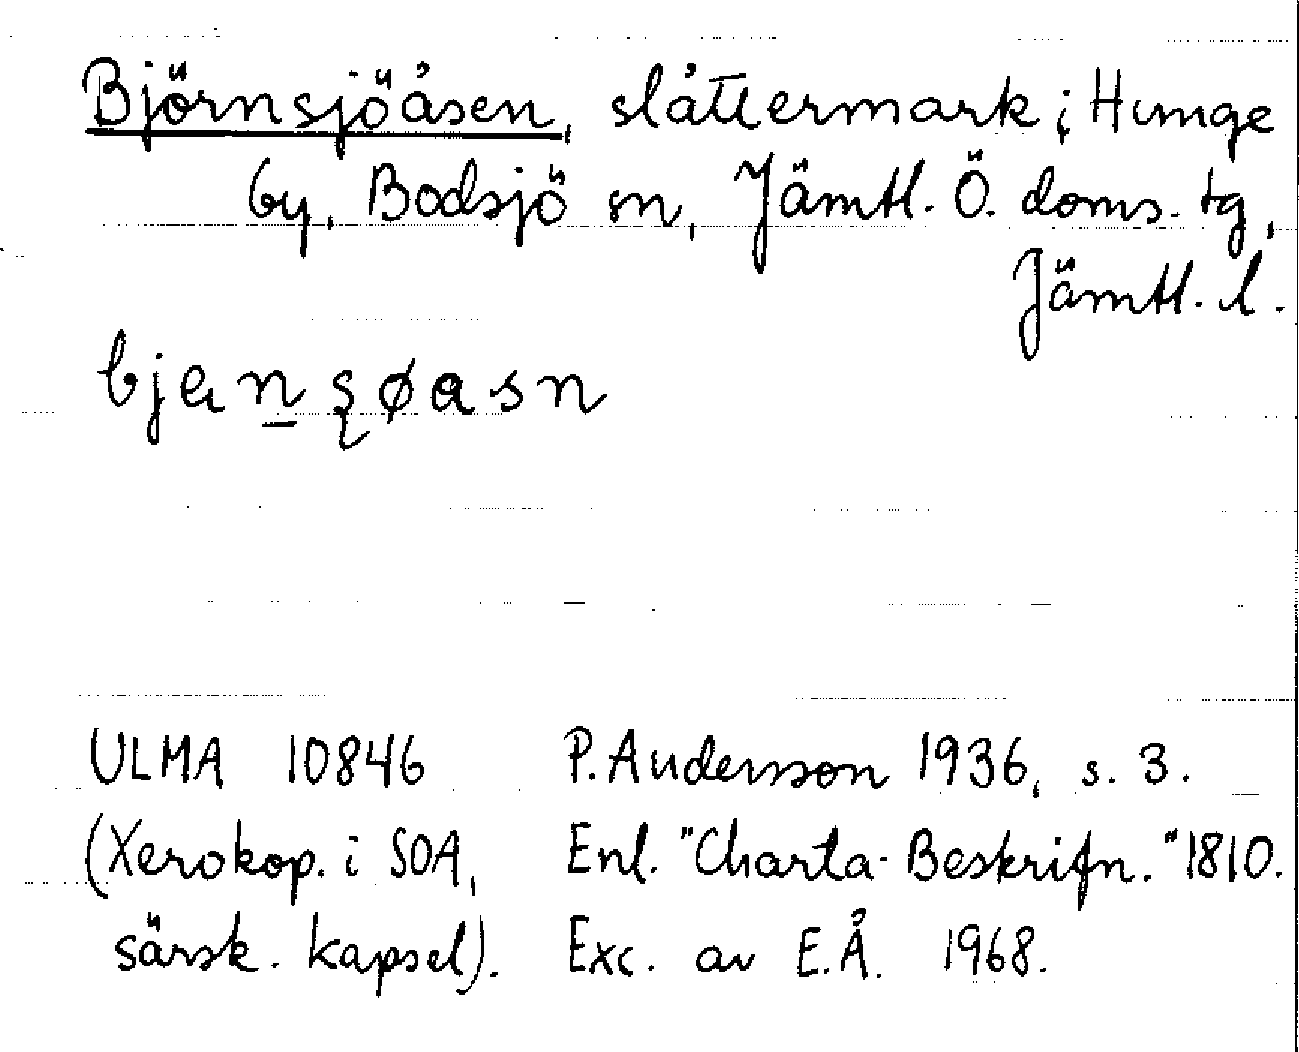 Björnsjöåsen, slåttermark; Hunge
by, Bodsjö sn, Jämtl. Ö. doms. tg,
Jämtl. l.
ULMA 10846 P. Andersson 1936, s. 3.
(Xerokop. i SOA, Enl. "Charta-Beskrifn." 1810.
särsk. kapsel). Exc. av E.Å. 1968.